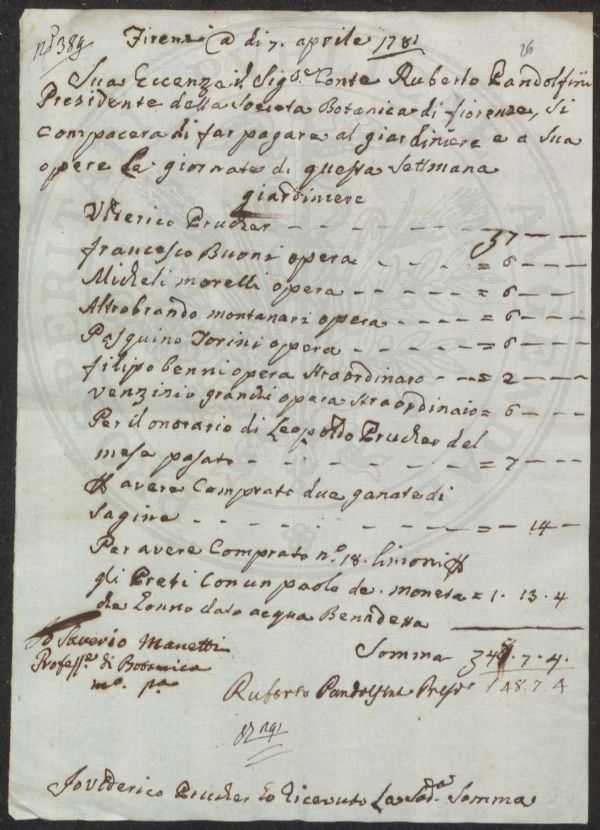 n° 389
Firenze @ di 7. aprile 1781
26
Sua Eccenza il Sigr. Conte Ruberto Pandolfini
Presidente della Società Botanica di fiorenze, si
compacera di far pagare al giardiniere e a sua
opere le giornate di quessa settmana
giardiniere
Ulderico Prucher - - - - - - 7 - -
francesco Buoni opera - - - - = 6 - - -
Micheli morelli opera - - - - = 6 - - -
Altobrando montanari opera - - - - = 6 - - -
Pasquino Torini opera - - - - = 6 - - -
filipo benni opera straordinaro - - = 2 - - -
venzinzio grandi opera straordinaio = 6 - - -
Per il onorario di Leopoldo Prucher del
mese pasato - - - - - - = 7 - - -
avere Comprato due ganate di
Sagine - - - - - - - = - 14 -
Per avere Comprato n.° 18. limoni
gli Preti Con un paolo de moneta = 1. 13. 4
dato acqua Benedetta
Io Saverio Manetti
Profess.e di Botanica
mo. pa
Somma 7. 4.
48. 7. 4
Ruberto Pandolfini Presde
Jo Ulderico Prucher ho ricevuto La Sod.a Somma